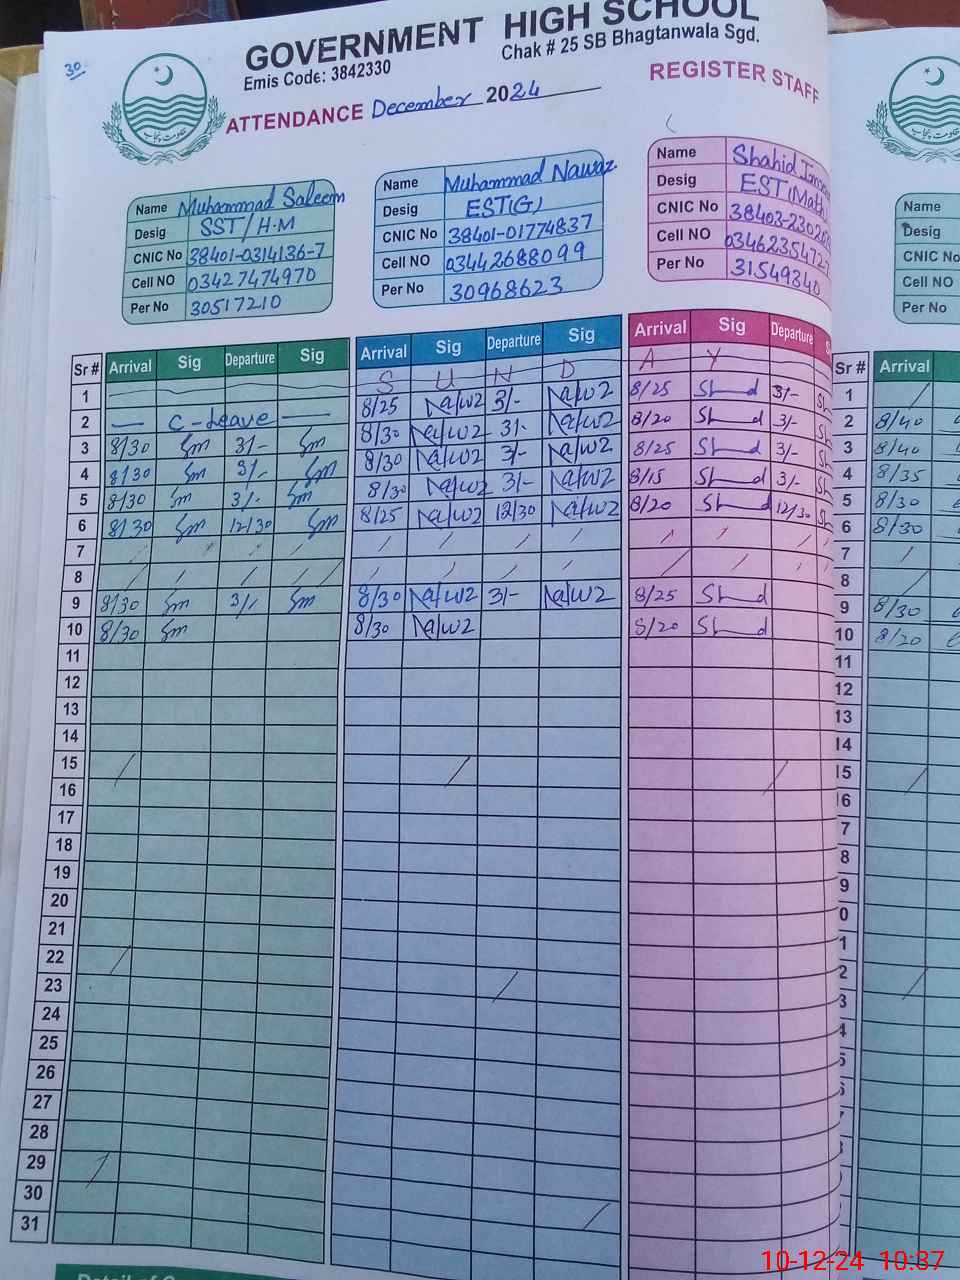 30
GOVERNMENT HIGH SCHOOL
Emis Code: 3842330
Chak # 25 SB Bhagtanwala Sgd.
ATTENDANCE December 2024
REGISTER STAFF
حکومت پنجاب
Name Muhammad Saleem
Desig SST/H.M
CNIC No 38401-0314136-7
Cell NO 03427474970
Per No 30517210
Name Muhammad Nawaz
Desig EST(G)
CNIC No 38401-01774837
Cell NO 03442688099
Per No 30968623
Name Shahid
Desig EST(Math
CNIC No 38403-2302
Cell NO 0346235472
Per No 31549340
Name
Desig
CNIC No
Cell NO
Per No
Sr # Arrival Sig Departure Sig Arrival Sig Departure Sig Arrival Sig Departure S Sr # Arrival
1 S U N D A Y 1
2 C-Leave 8/25 Na/wz 3/- Na/wz 8/25 Sh d 3/- Sh 2 8/40
3 8/30 Sm 3/- Sm 8/30 Na/wz 3/- Na/wz 8/20 Sh d 3/- Sh 3 8/40
4 8/30 Sm 3/- Sm 8/30 Na/wz 3/- Na/wz 8/25 Sh d 3/- Sh 4 8/35
5 8/30 Sm 3/- Sm 8/30 Na/wz 3/- Na/wz 8/15 Sh d 3/- Sh 5 8/30
6 8/30 Sm 12/30 Sm 8/25 Na/wz 12/30 Na/wz 8/20 Sh d 12/30 Sh 6 8/30
7 7
8 8
9 8/30 Sm 3/- Sm 8/30 Na/wz 3/- Na/wz 8/25 Sh d 9 8/30
10 8/30 Sm 8/30 Na/wz 8/20 Sh d 10 8/20
11 11
12 12
13 13
14 14
15 15
16 16
17 7
18 8
19 9
20 0
21 1
22 2
23 3
24 4
25 5
26 6
27
28
29
30
31
10-12-24 10:37